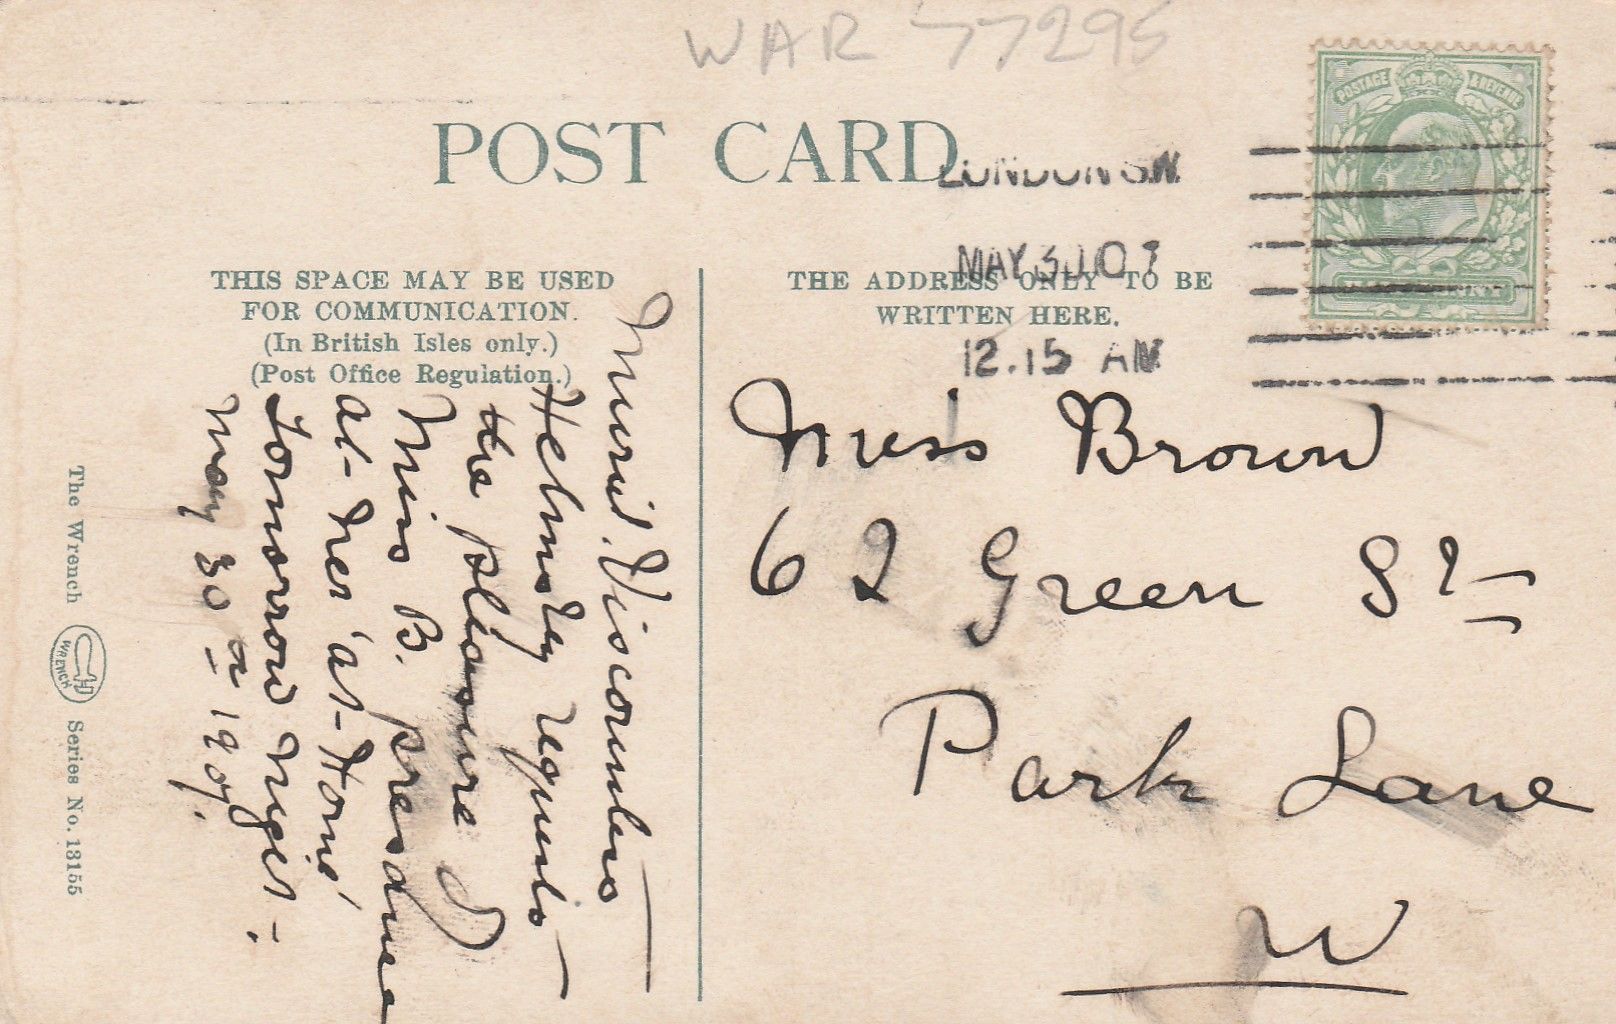 WAR 77295
POST CARD
LONDON S.W.
MAY 30 07
12.15 AM
POSTAGE REVENUE
THIS SPACE MAY BE USED
FOR COMMUNICATION.
(In British Isles only.)
(Post Office Regulation.)
THE ADDRESS ONLY TO BE
WRITTEN HERE.
Muriel. Viscountess
Helmsley requests
the pleasure of
Miss B. presence
at her 'at-Home'
tomorrow night :
May 30th 1907.
Miss Brown
62 Green St
Park Lane
W
The Wrench
WRENCH
Series No. 13155